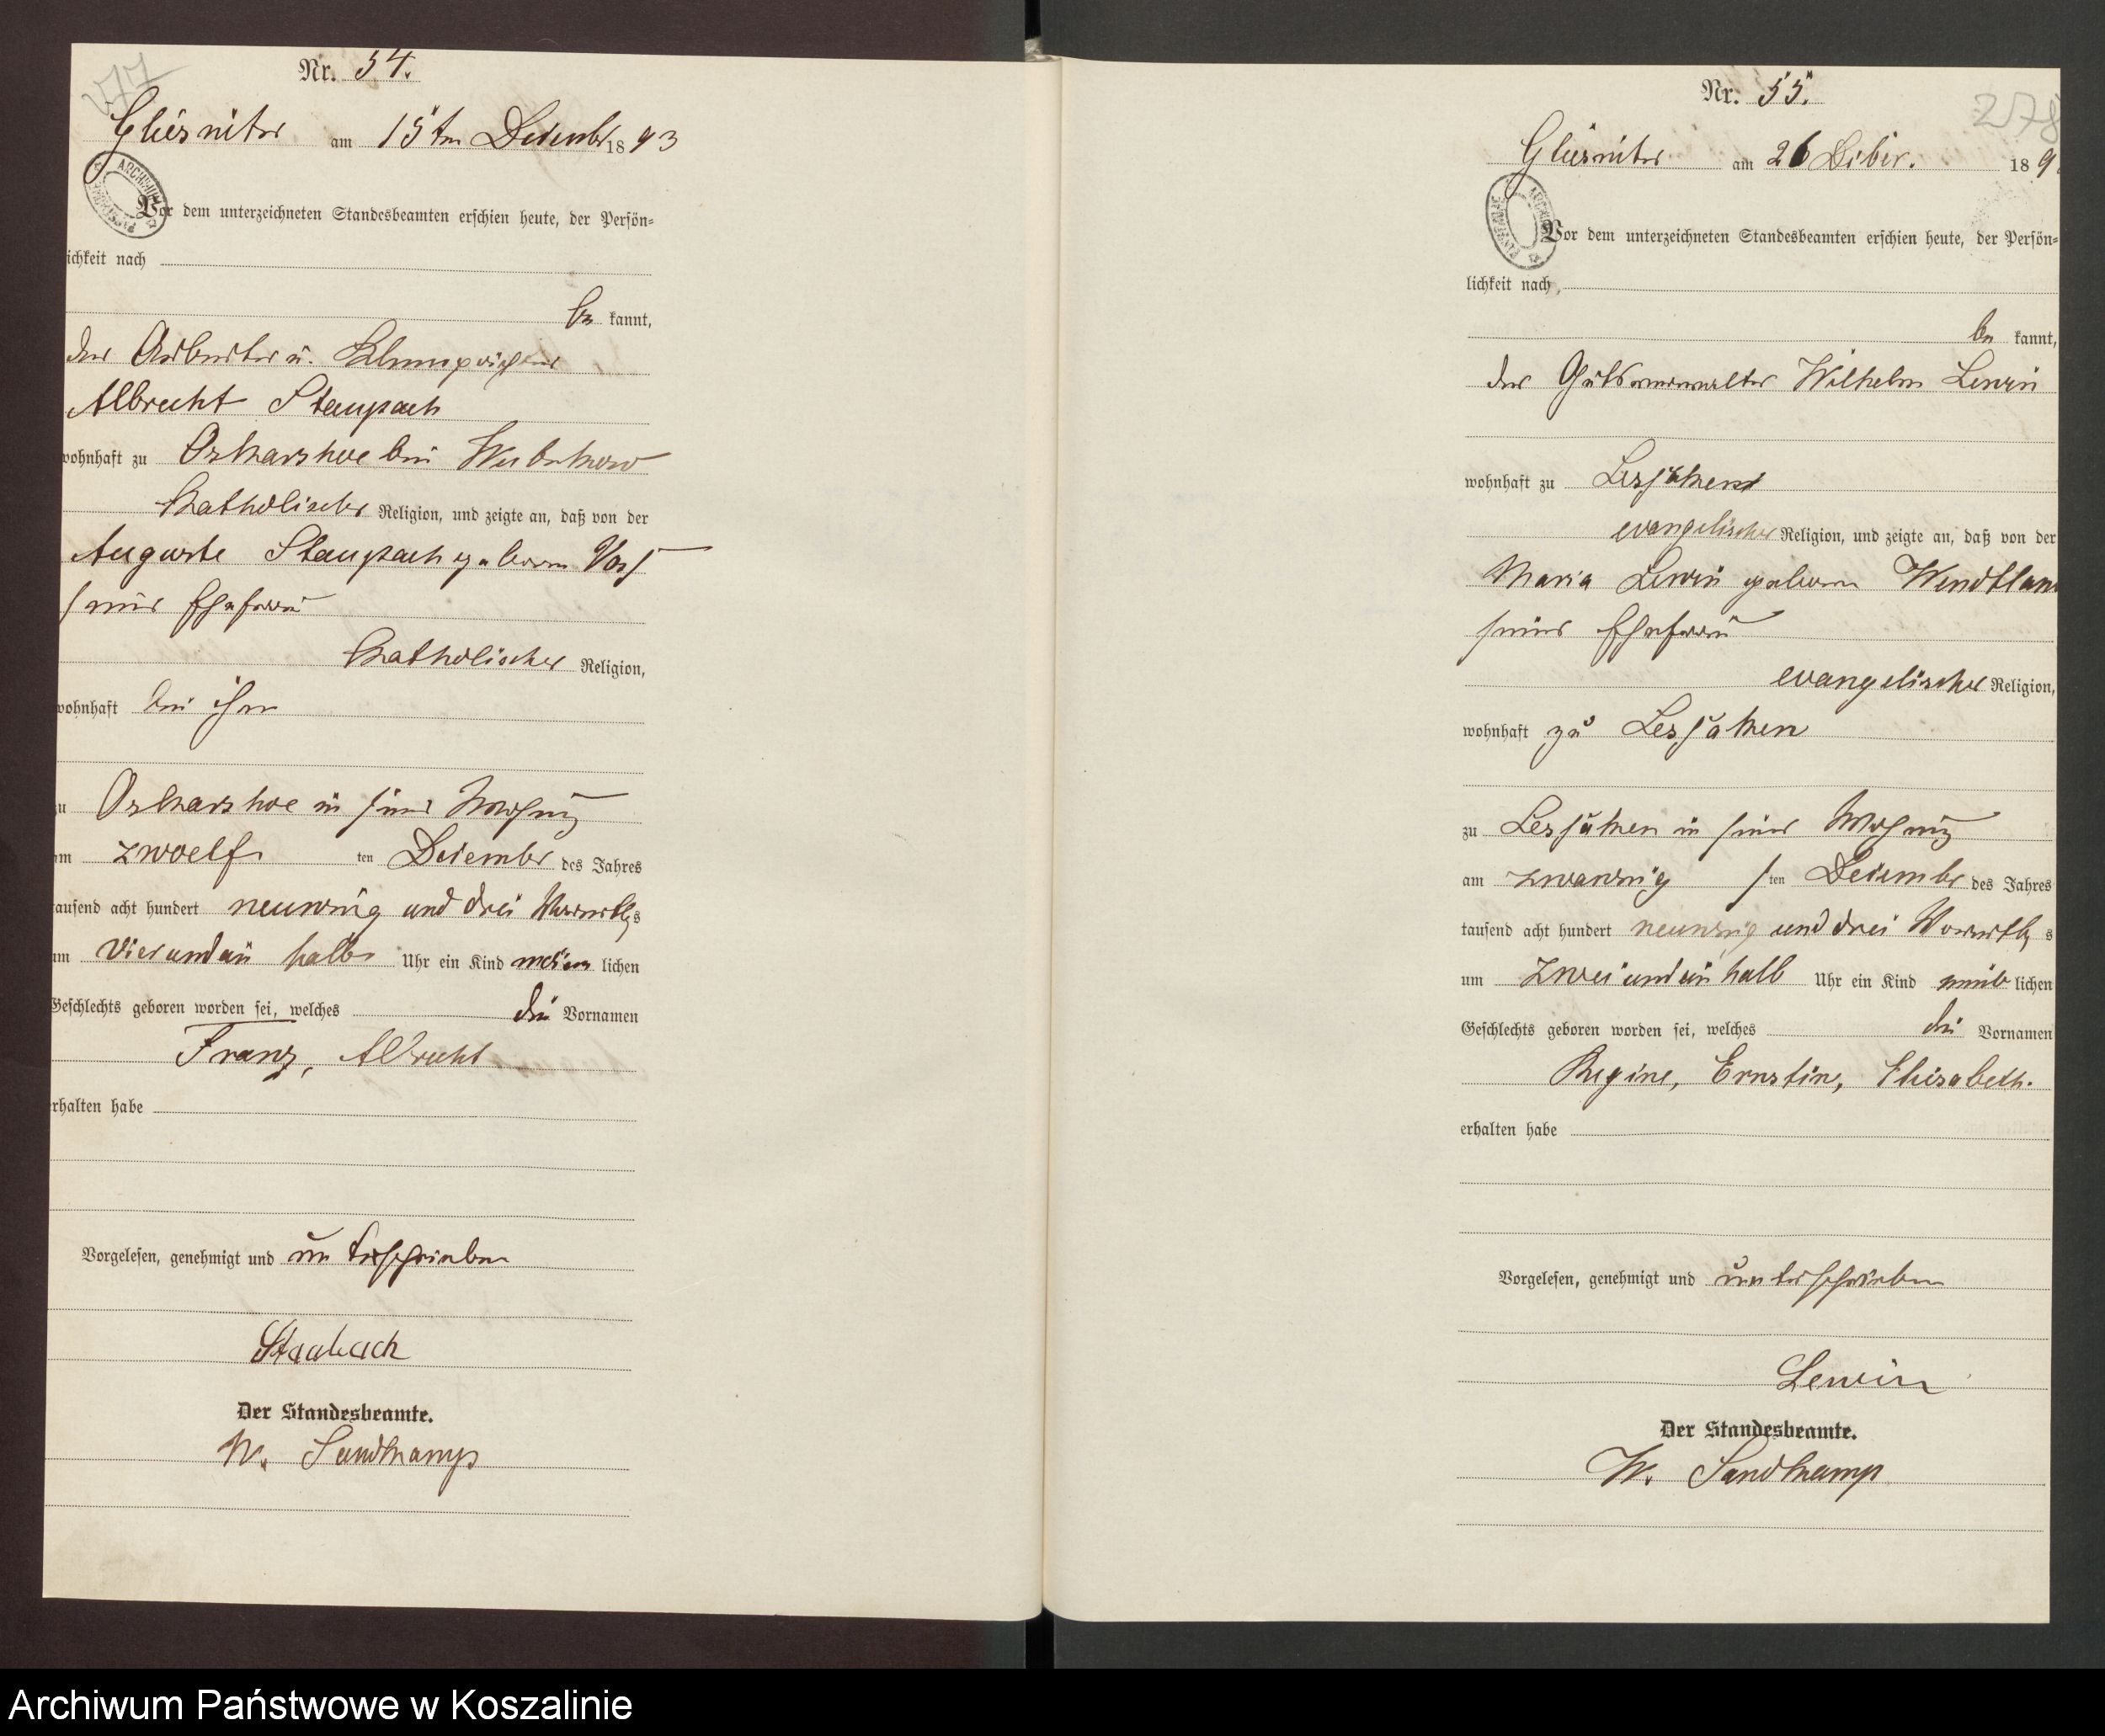 277
Nr. 54.
Gliesnitz am 15ten Dezember 1893
Vor dem unterzeichneten Standesbeamten erschien heute, der Persön=
ichkeit nach
be kannt,
der Arbeiter u.
Albrecht Staupach
wohnhaft zu Oskarshoe bei
katholischer Religion, und zeigte an, daß von der
Auguste Staupach geborene Voss
seiner Ehefrau
katholischer Religion,
wohnhaft bei ihm
zu Oskarshoe in seiner Wohnung
am zwoelf ten Dezember des Jahres
tausend acht hundert neunzig und drei Vormittags
um vier und ein halb Uhr ein Kind männ lichen
Geschlechts geboren worden sei, welches die Vornamen
Franz, Albrecht
erhalten habe
Vorgelesen, genehmigt und unterschrieben
Staubach
Der Standesbeamte.
W. Sandkamp
278
Nr. 55.
Gliesnitz am 26 Dzbr. 189
Vor dem unterzeichneten Standesbeamten erschien heute, der Persön=
lichkeit nach,
be kannt,
der Gutsverwalter Wilhelm Lewin
wohnhaft zu Lesjaken
evangelischer Religion, und zeigte an, daß von der
Maria Lewin geborene Wendtlan
seiner Ehefrau
evangelischer Religion,
wohnhaft zu Lesjaken
zu Lesjaken in seiner Wohnung
am zwanzig sten Dezember des Jahres
tausend acht hundert neunzig und drei Vormittags
um zwei und ein halb Uhr ein Kind weib lichen
Geschlechts geboren worden sei, welches die Vornamen
Regine, Ernstine, Elisabeth.
erhalten habe
Vorgelesen, genehmigt und unterschrieben
Lewin
Der Standesbeamte.
W. Sandkamp
Archiwum Państwowe w Koszalinie